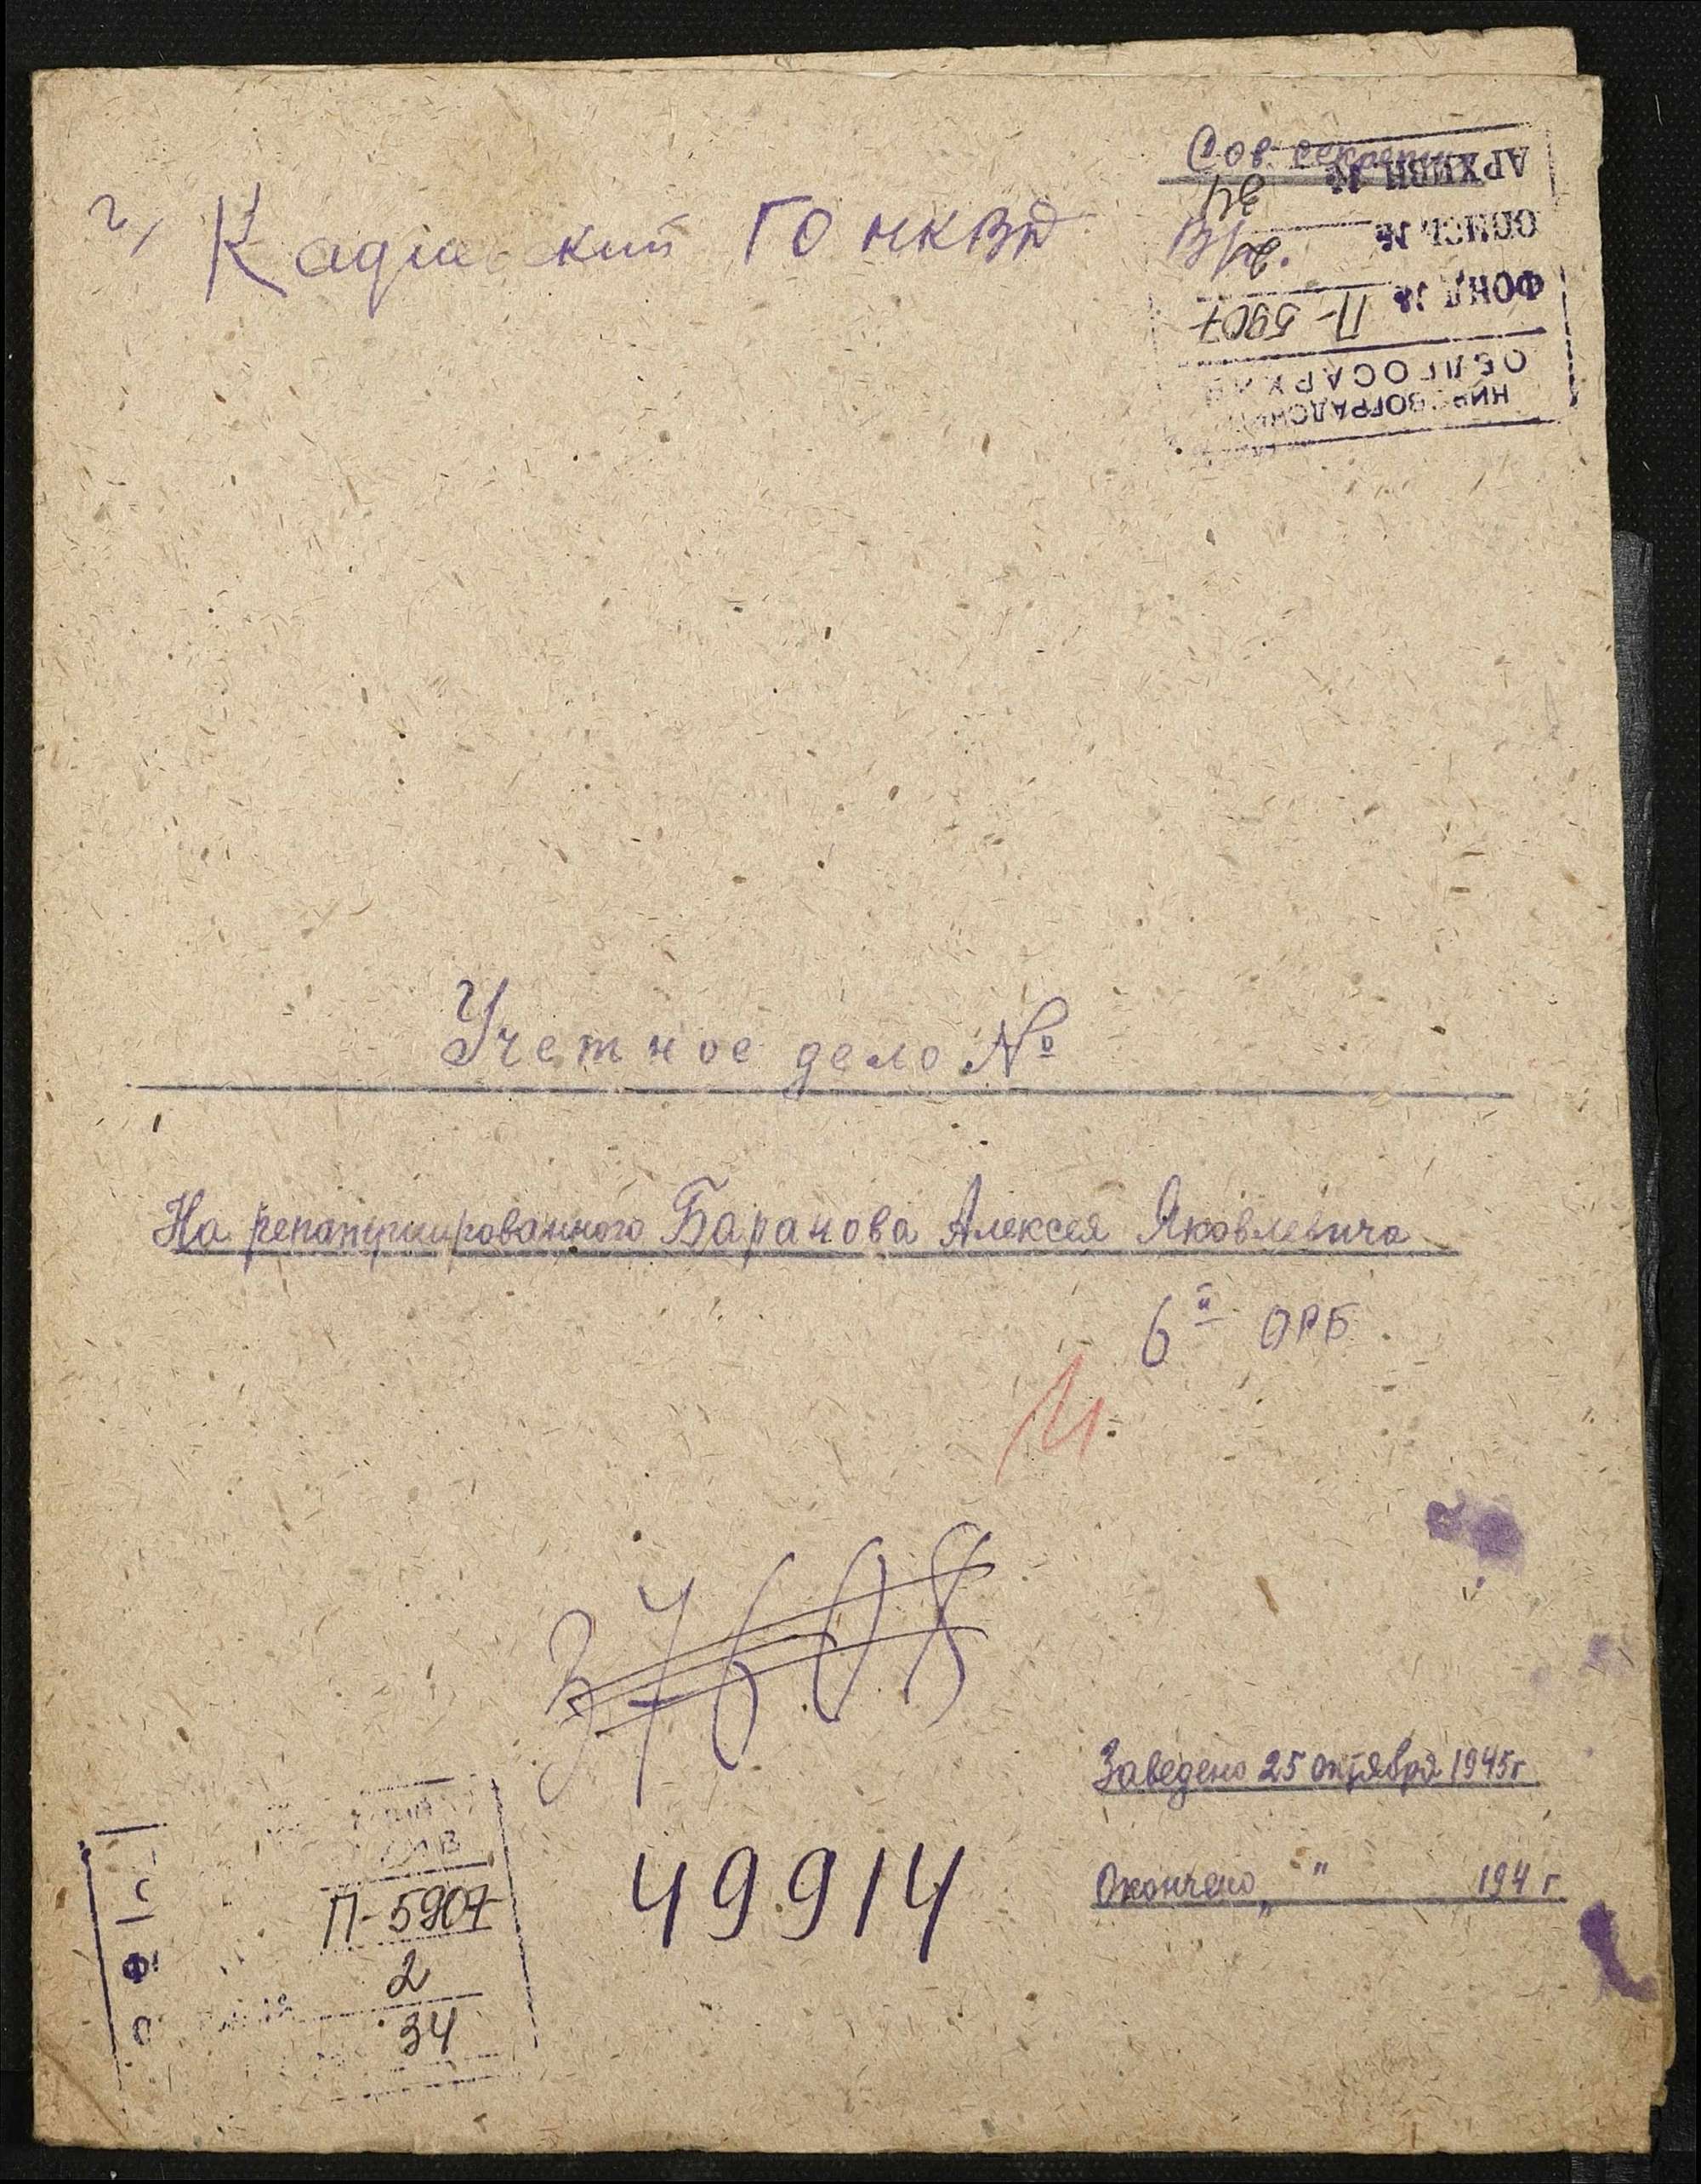 Сов. секретно
г, Кадиевский ГО НКВД
АРХИВН. №
34
ОПИСЬ №
2
ФОНД №
П-5907
ОБЛГОСАРХИВ
КИРОВОГРАДСКИЙ
Учетное дело №
На репатриированного Баранова Алексея Яковлевича
6й ОРБ
37608
Заведено 25 октября 1945г
49914
Окончено „ " 194 г.
П-5907
2
34